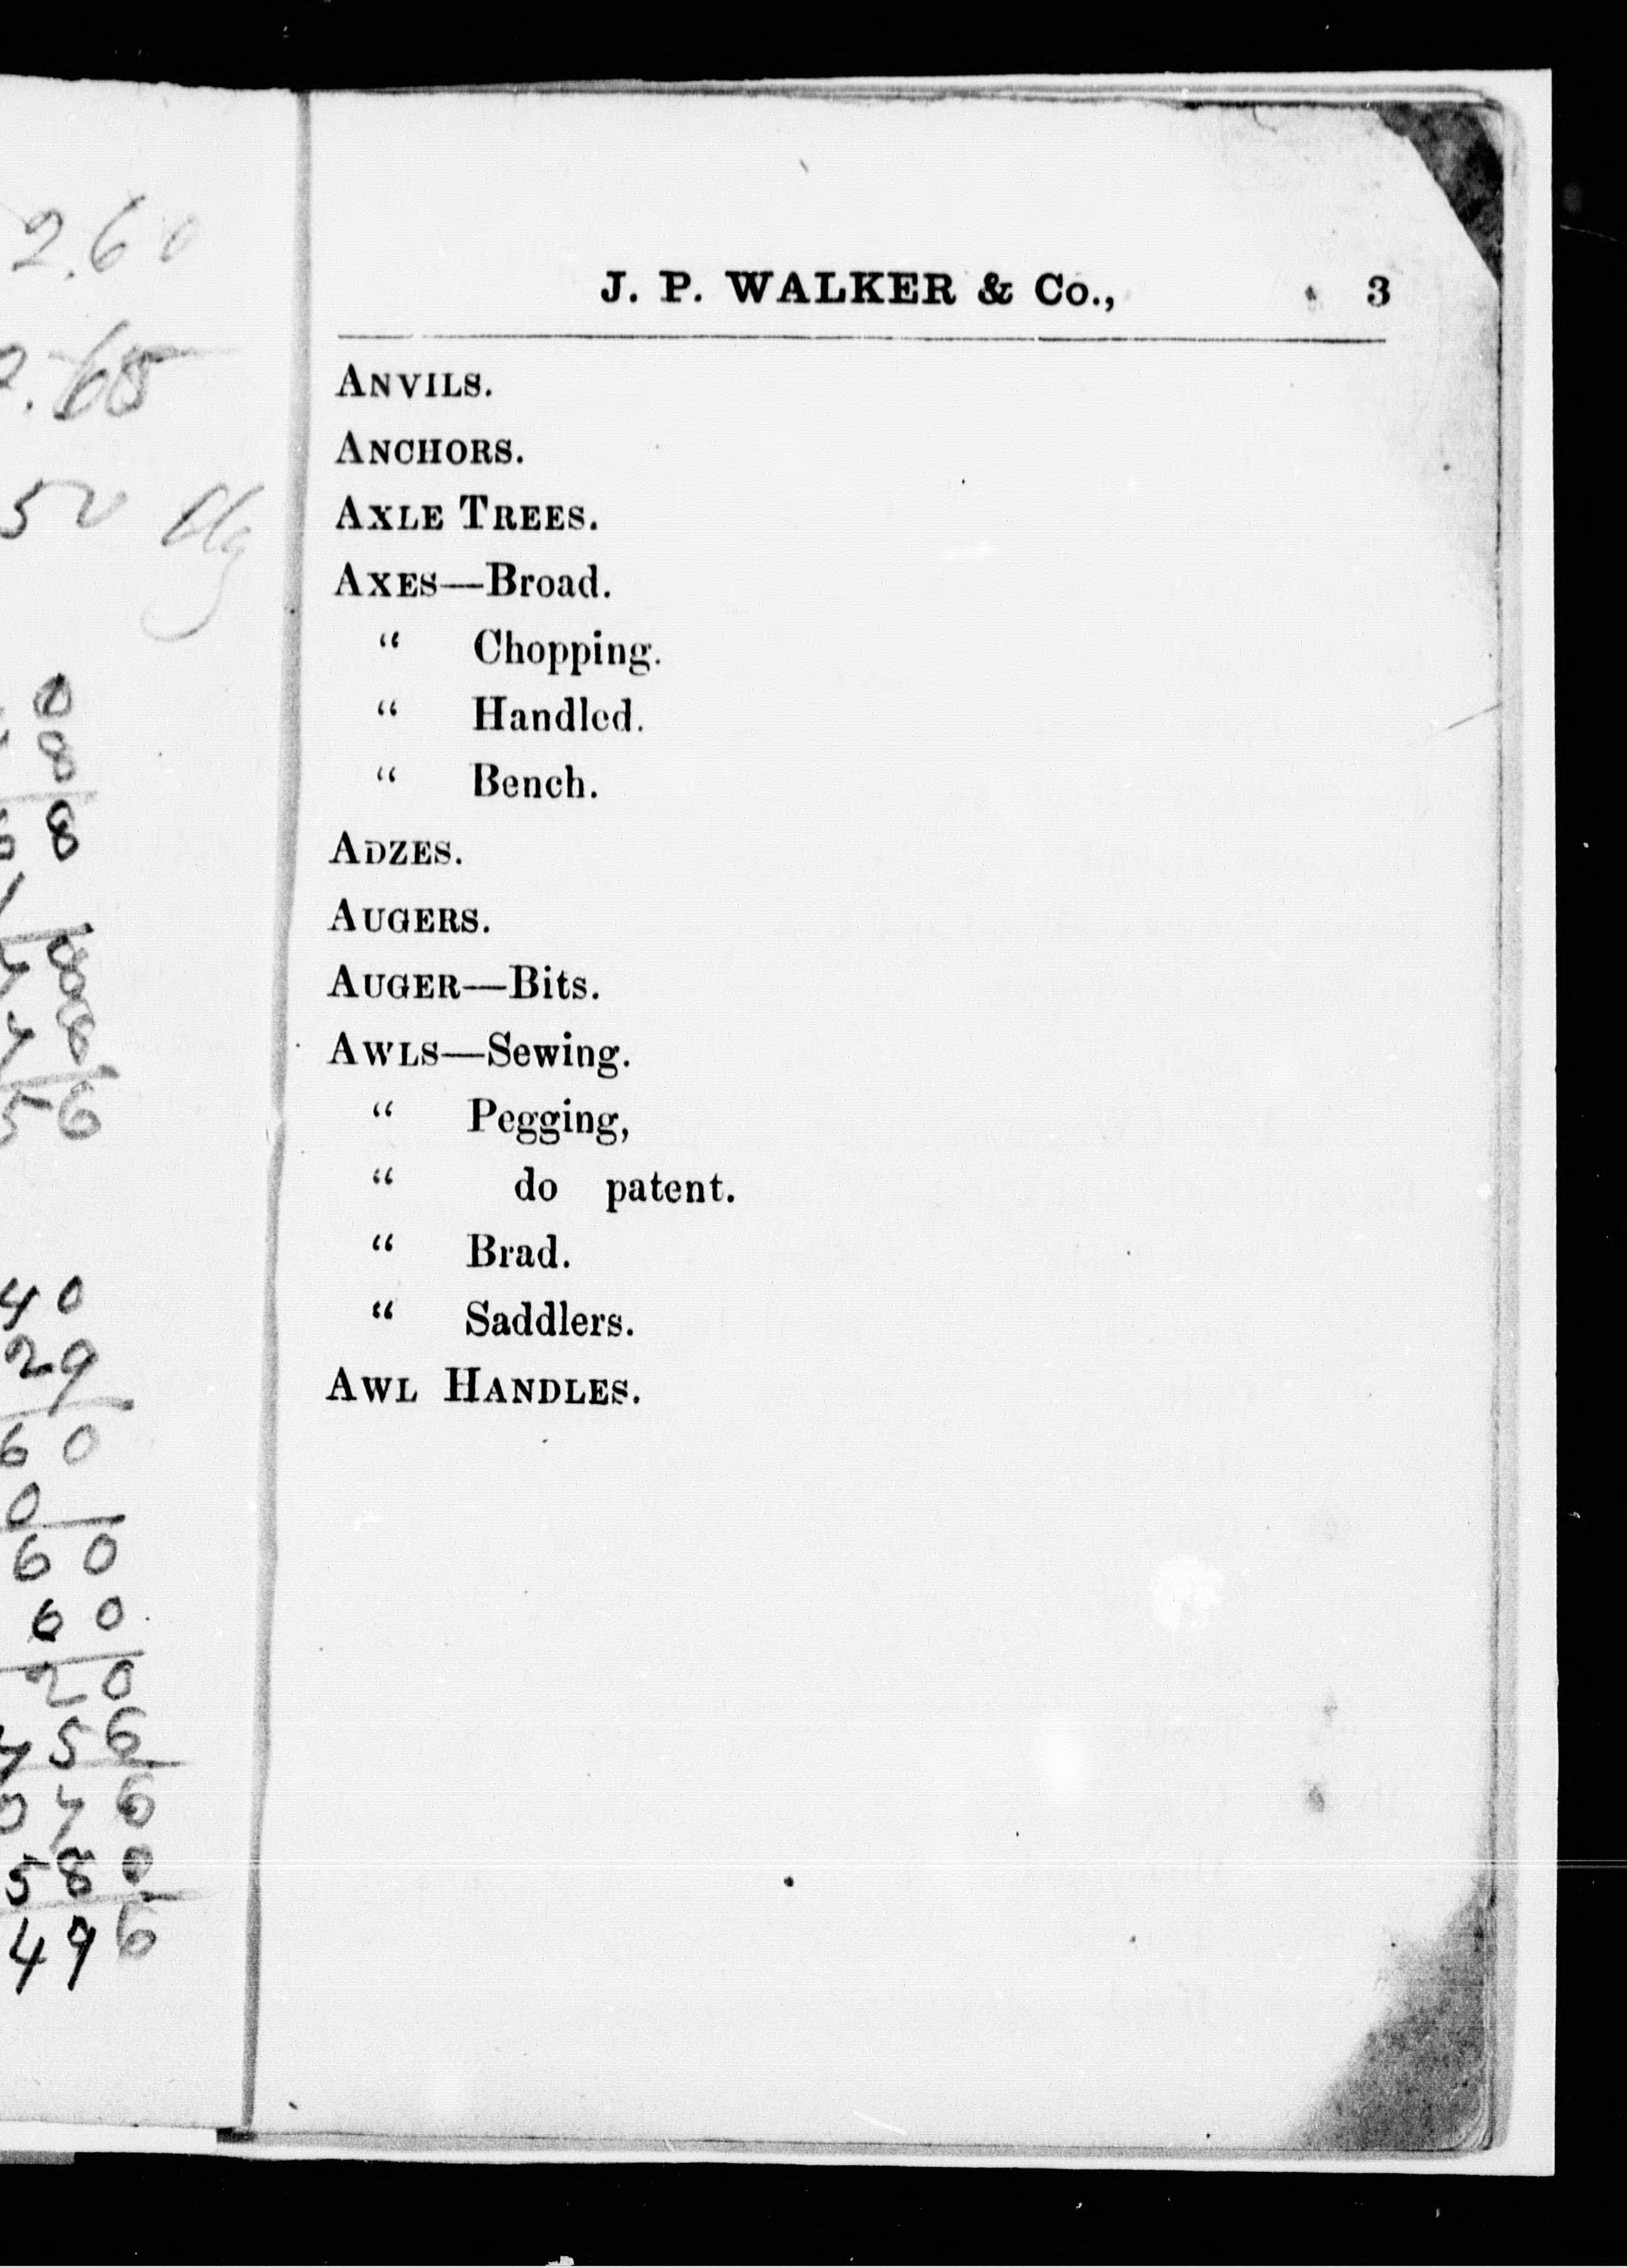 2.60
.65
50
0
8
8
8
8
56
40
29
60
0
60
60
20
456
076
580
496
J. P. WALKER & Co., 3
ANVILS.
ANCHORS.
AXLE TREES.
AXES—Broad.
“ Chopping.
“ Handled.
“ Bench.
ADZES.
AUGERS.
AUGER—Bits.
AWLS—Sewing.
“ Pegging,
“ do patent.
“ Brad.
“ Saddlers.
AWL HANDLES.